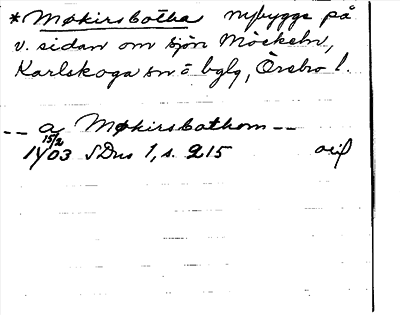 *Møkirsbotha nybygge på
v. sidan om sjön Möckeln,
Karlskoga sn o bglg, Örebro l.
-- a Møkirsbothom --
15/2
1403 SDns 1, s. 215